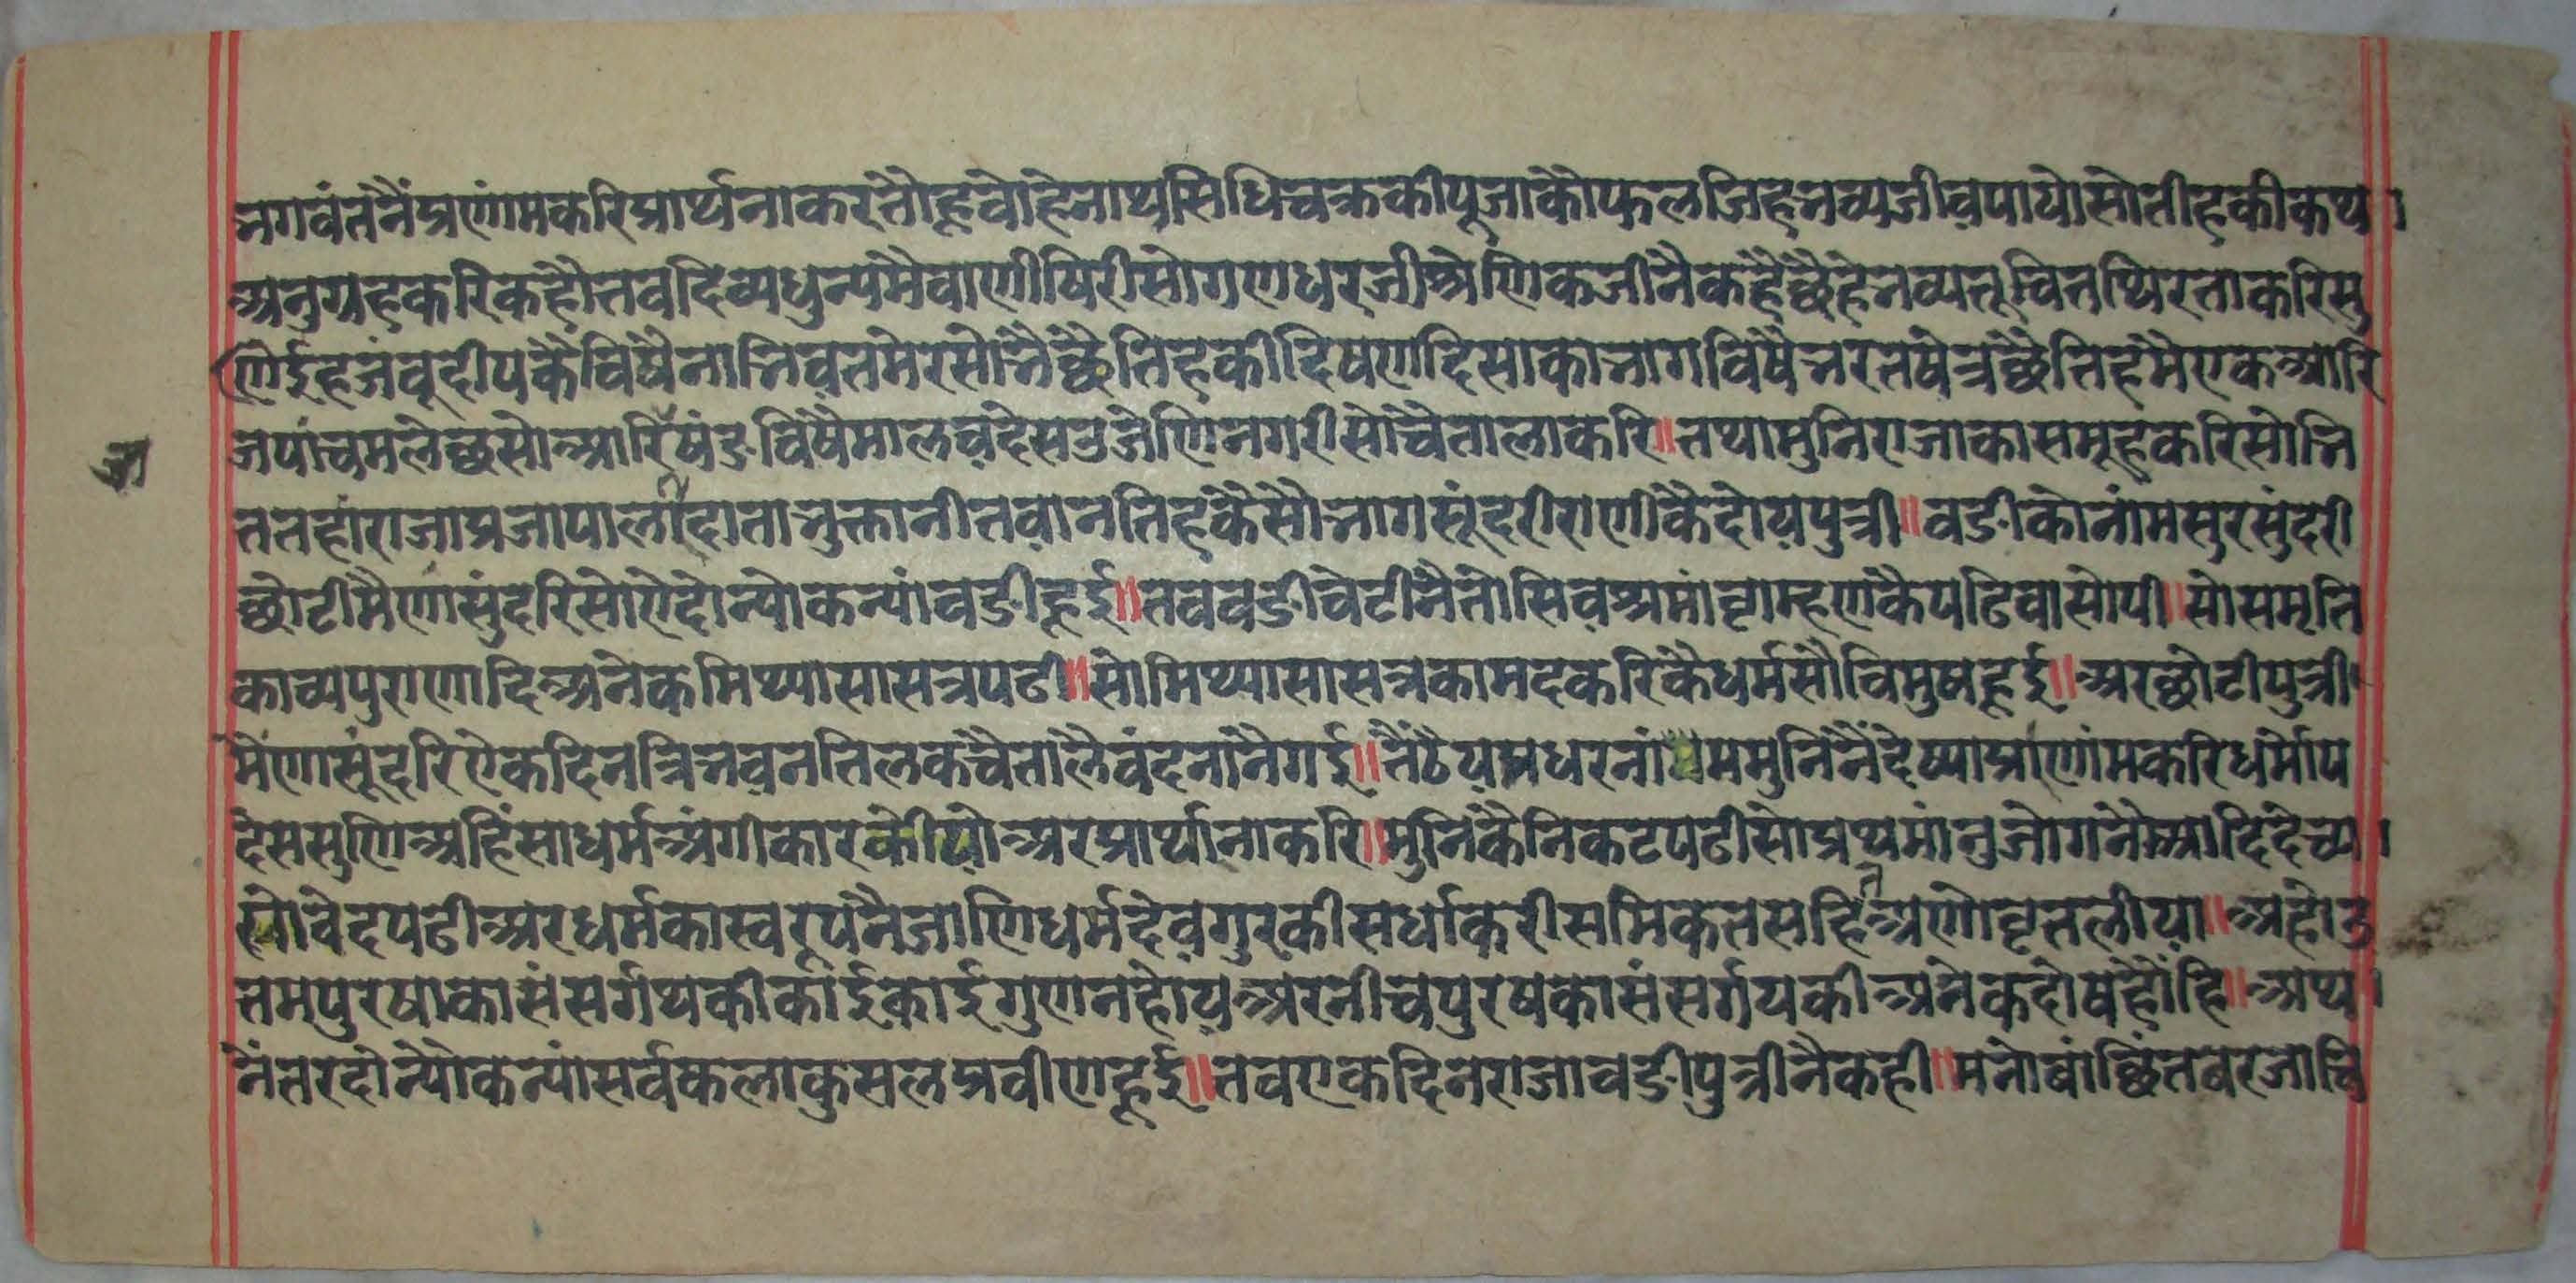 भगवंतनैंप्रणांमकरिप्रार्थनाकरतौहूवोहेनाथसिधिचक्रकीपूजाकौफलजिहभव्यजीव़पायोसोतीहकीकथा
अनुग्रहकरिकहौतवदिव्यधुन्यमैवाणीषिरीसोगणधरजीश्रेणिकजीनैकहैछैहेभव्यतूचितथिरताकरिसु
णिईहजंवूदीपकैविषैनाभिव़तमेरसोभैछैतिहकीदिषणदिसाकाभागविषैभरतषेत्रछैतिहमैएकआरि
जपांचमलेच्छसोआरिषंडविषैमालव़देसउजेणिनगरीसोचैतालाकरि॥तथामुनिराजाकासमूहकरिसोभि
ततहांराजाप्रजापालदाताभुक्तानीतव़ानतिहकैसौभागसूंदरीराणीकैदोय़पुत्री॥वडीकोनांमसुरसुंदरी
छोटीमैणासुंदरिसोऐदोन्योकन्यांवडीहूई॥तववडीवेटीनैतोसिव़श्रमांव्राम्हणकैपढिवासोपी॥सोसमृति
काव्यपुराणादिअनेकमिथ्यासासत्रपढी॥सोमिथ्यासासत्रकामदकरिकैधर्मसौविमुषहूई॥अरछोटीपुत्री
मैणासूंदरिऐकदिनत्रिभव़नतिलकचैतालैवंदनांनैगई॥तैठैय़मधरनांममुनिनैंदेष्याप्रणांमकरिधर्मोप
देससुणिअहिंसाधर्मअंगीकारकीय़ोअरप्रार्थानाकरि॥मुनिकैनिकटपढीसोप्रथमांनुजोगनैआदिदेच्या
स्योवेदपढीअरधर्मकास्वरूपनैजाणिधर्मदेव़गुरकीसर्धाकरीसमिकतसहितअणोव्रतलीय़ा॥अहोउ
तमपुरषाकासंसर्गथकीकांईकाईगुणनहोय़अरनीचपुरषकासंसर्गथकीअनेकदोषहौंहि॥अथा
नंतरदोन्योकन्यांसर्वकलाकुसलप्रवीणहूई॥तवएकदिनराजावडीपुत्रीनैकही॥मनोबांछितबरजाचि